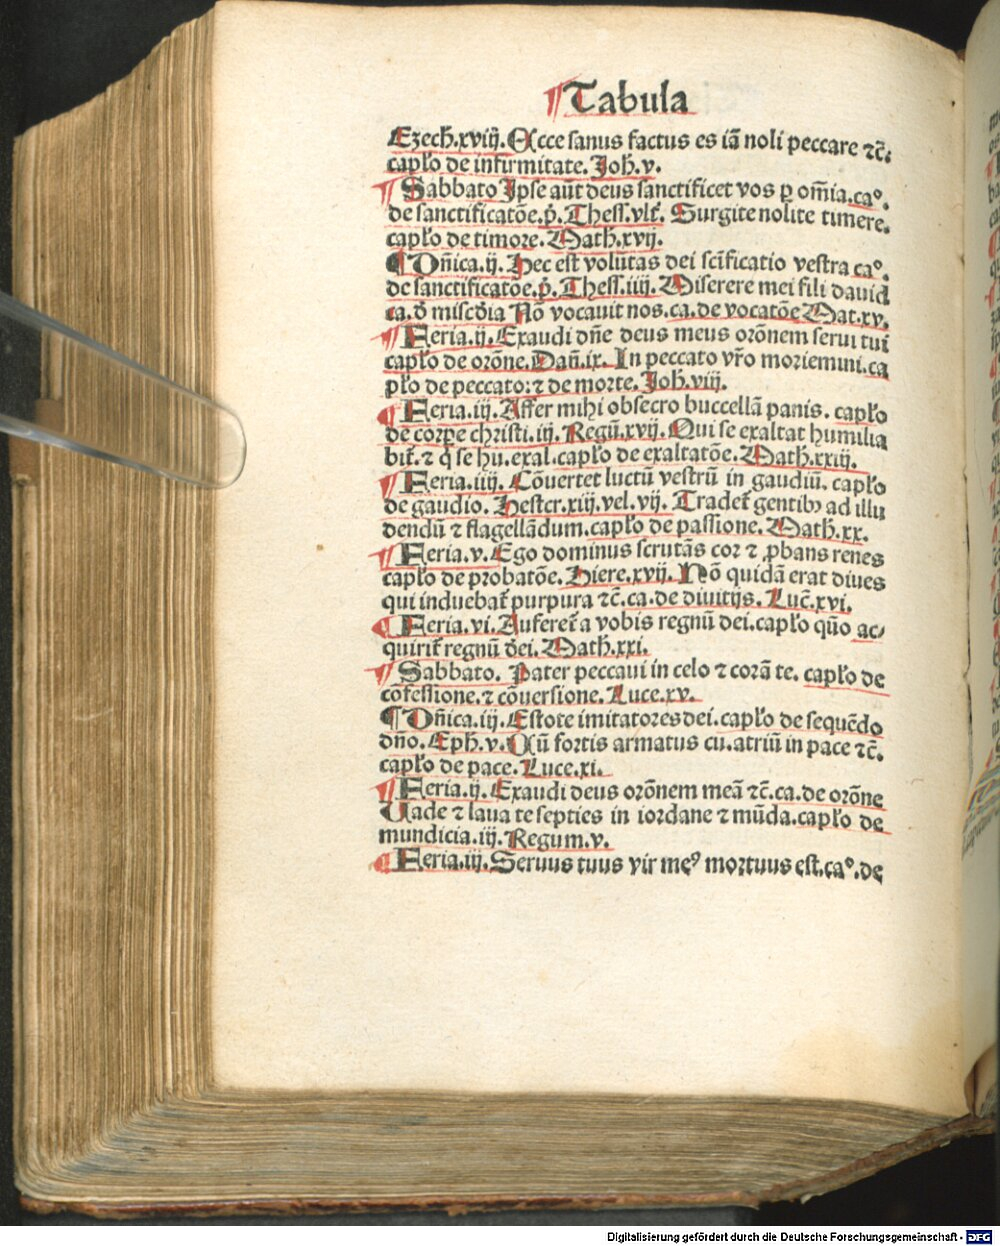 ¶Tabula
Ezech.xviij. Ecce sanus factus es iã noli peccare ⁊c̃:
capl̃o de infirmitate. Joh̃.v.
¶ Sabbato Ipse aũt deus sanctificet vos ꝑ om̃ia.caº.
de sanctificatõe.p̃. Thess.vlt̃. Surgite nolite timere.
capl̃o de timore. Math̃.xvij.
¶ Dñica.ij. Hec est volũtas dei sc̃ificatio vestra caº.
de sanctificatõe.p̃. Thess.iiij. Miserere mei fili dauid
ca.d̃ misc̃dia Nõ vocauit nos.ca.de vocatõe Mat.xv.
¶ Feria.ij. Exaudi dñe deus meus orõnem serui tui
capl̃o de orõne. Dañ.ix. In peccato vr̃o moriemini.ca
pl̃o de peccato: ⁊ de morte. Joh̃.viij.
¶ Feria.iij. Affer mihi obsecro buccellã panis. capl̃o
de corꝑe christi.iij. Regũ.xvij. Qui se exaltat humilia
bit̃. ⁊ q̃ se hu.exal.capl̃o de exaltatõe. Math̃.xxiij.
¶ Feria.iiij. Cõuertet luctũ vestrũ in gaudiũ. capl̃o
de gaudio. Hester.xiij.vel.vij. Tradet̃ gentibꝫ ad illu
dendũ ⁊ flagellãdum.capl̃o de passione. Math̃.xx.
¶ Feria.v. Ego dominus scrutãs cor ⁊ ꝓbans renes
capl̃o de probatõe. Hiere.xvij. Nõ quidã erat diues
qui induebat̃ purpura ⁊c̃.ca.de diuitijs. Luc̃.xvi.
¶ Feria.vi. Auferet̃ a vobis regnũ dei.capl̃o qũo ac⸗
quirit̃ regnũ dei. Math̃.xxi.
¶ Sabbato. Pater peccaui in celo ⁊ corã te. capl̃o de
cõfessione.⁊ cõuersione. Luce.xv.
¶ Dñica.iij. Estote imitatores dei.capl̃o de sequẽdo
dño. Eph̃.v. Cũ fortis armatus cu.atriũ in pace ⁊c̃.
capl̃o de pace. Luce.xi.
¶ Feria.ij. Exaudi deus orõnem meã ⁊c̃.ca.de orõne
Uade ⁊ laua te septies in iordane ⁊ mũda.capl̃o de
mundicia.iij. Regum.v.
¶ Feria.iij. Seruus tuus vir meꝰ mortuus est.caº.de
Digitalisierung gefördert durch die Deutsche Forschungsgemeinschaft - DFG